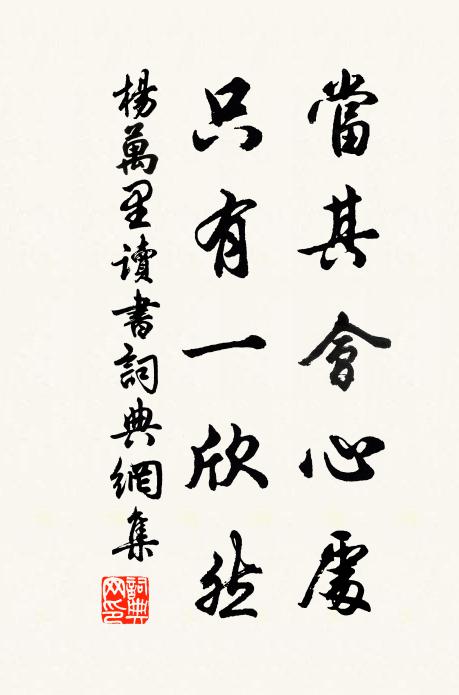 當其會心處
只有一欣然
楊萬里讀書詞典網集
詞典網印